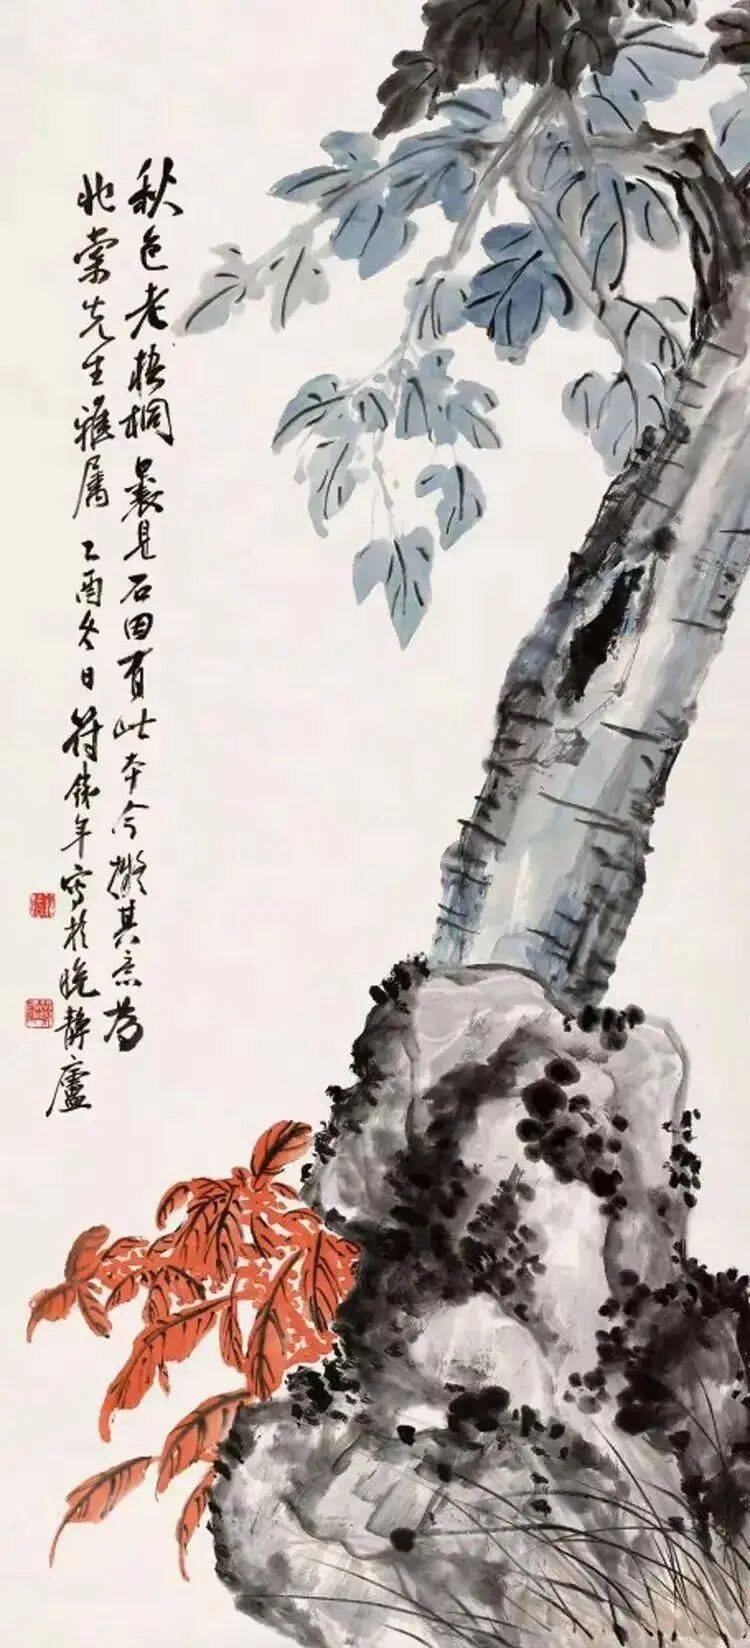 秋色老梧桐曩見石田有此本今擬其意為
棠先生雅屬乙酉冬日符鐵年寫於晚靜廬